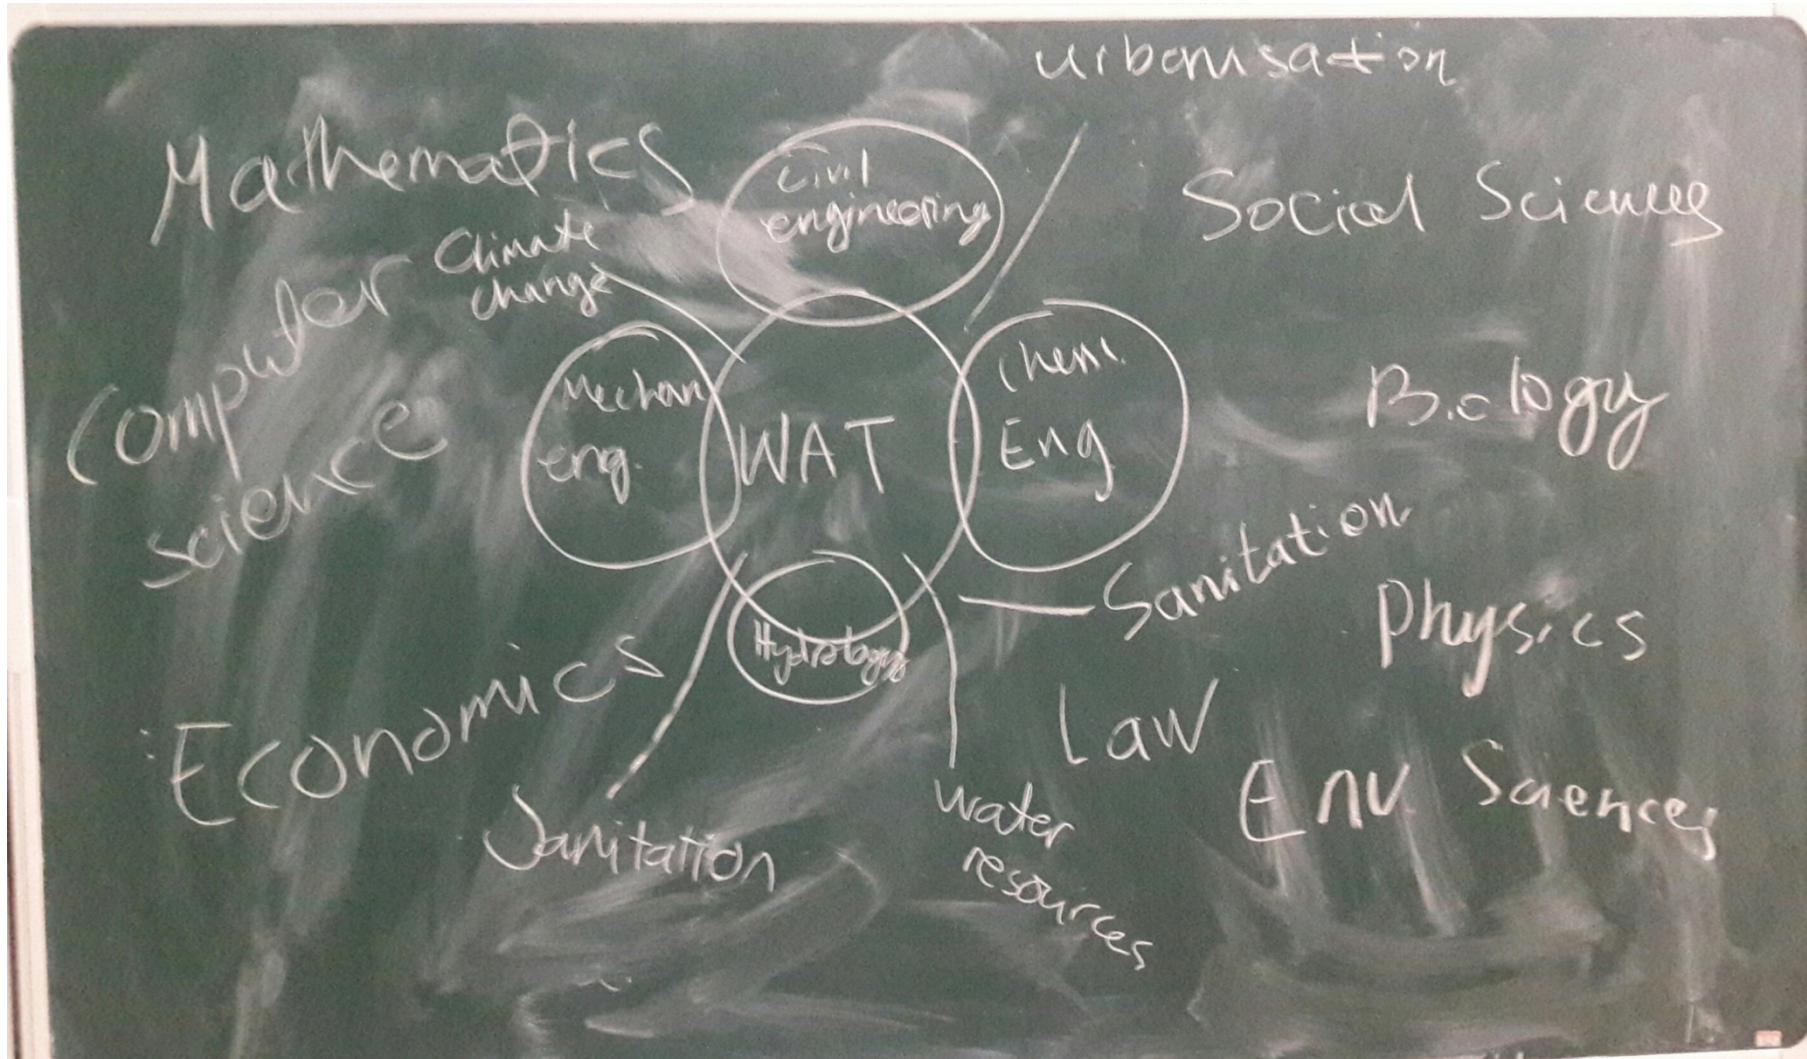 urbanisation
Mathematics
Civil
engineering
Social Sciences
Climate
change
Computer
science
Mechan
eng.
WAT
Chem.
Eng
Biology
Sanitation
Hydrology
Physics
Economics
Law
Env Sciences
Sanitation
water
resources